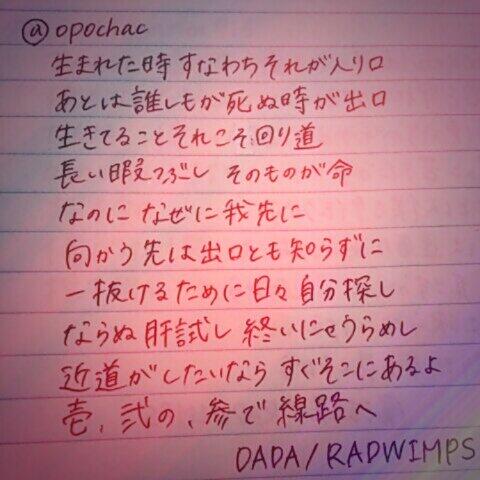 @opochac
生まれた時すなわちそれが入り口
あとは誰しもが死ぬ時が出口
生きてることそれこそ回り道
長い暇つぶし そのものが命
なのに なぜに我先に
向かう先は出口とも知らずに
一抜けるために日々自分探し
ならぬ肝試し 終いにゃうらめし
近道がしたいなら すぐそこにあるよ
壱、弐の、参で線路へ
DADA/RADWIMPS